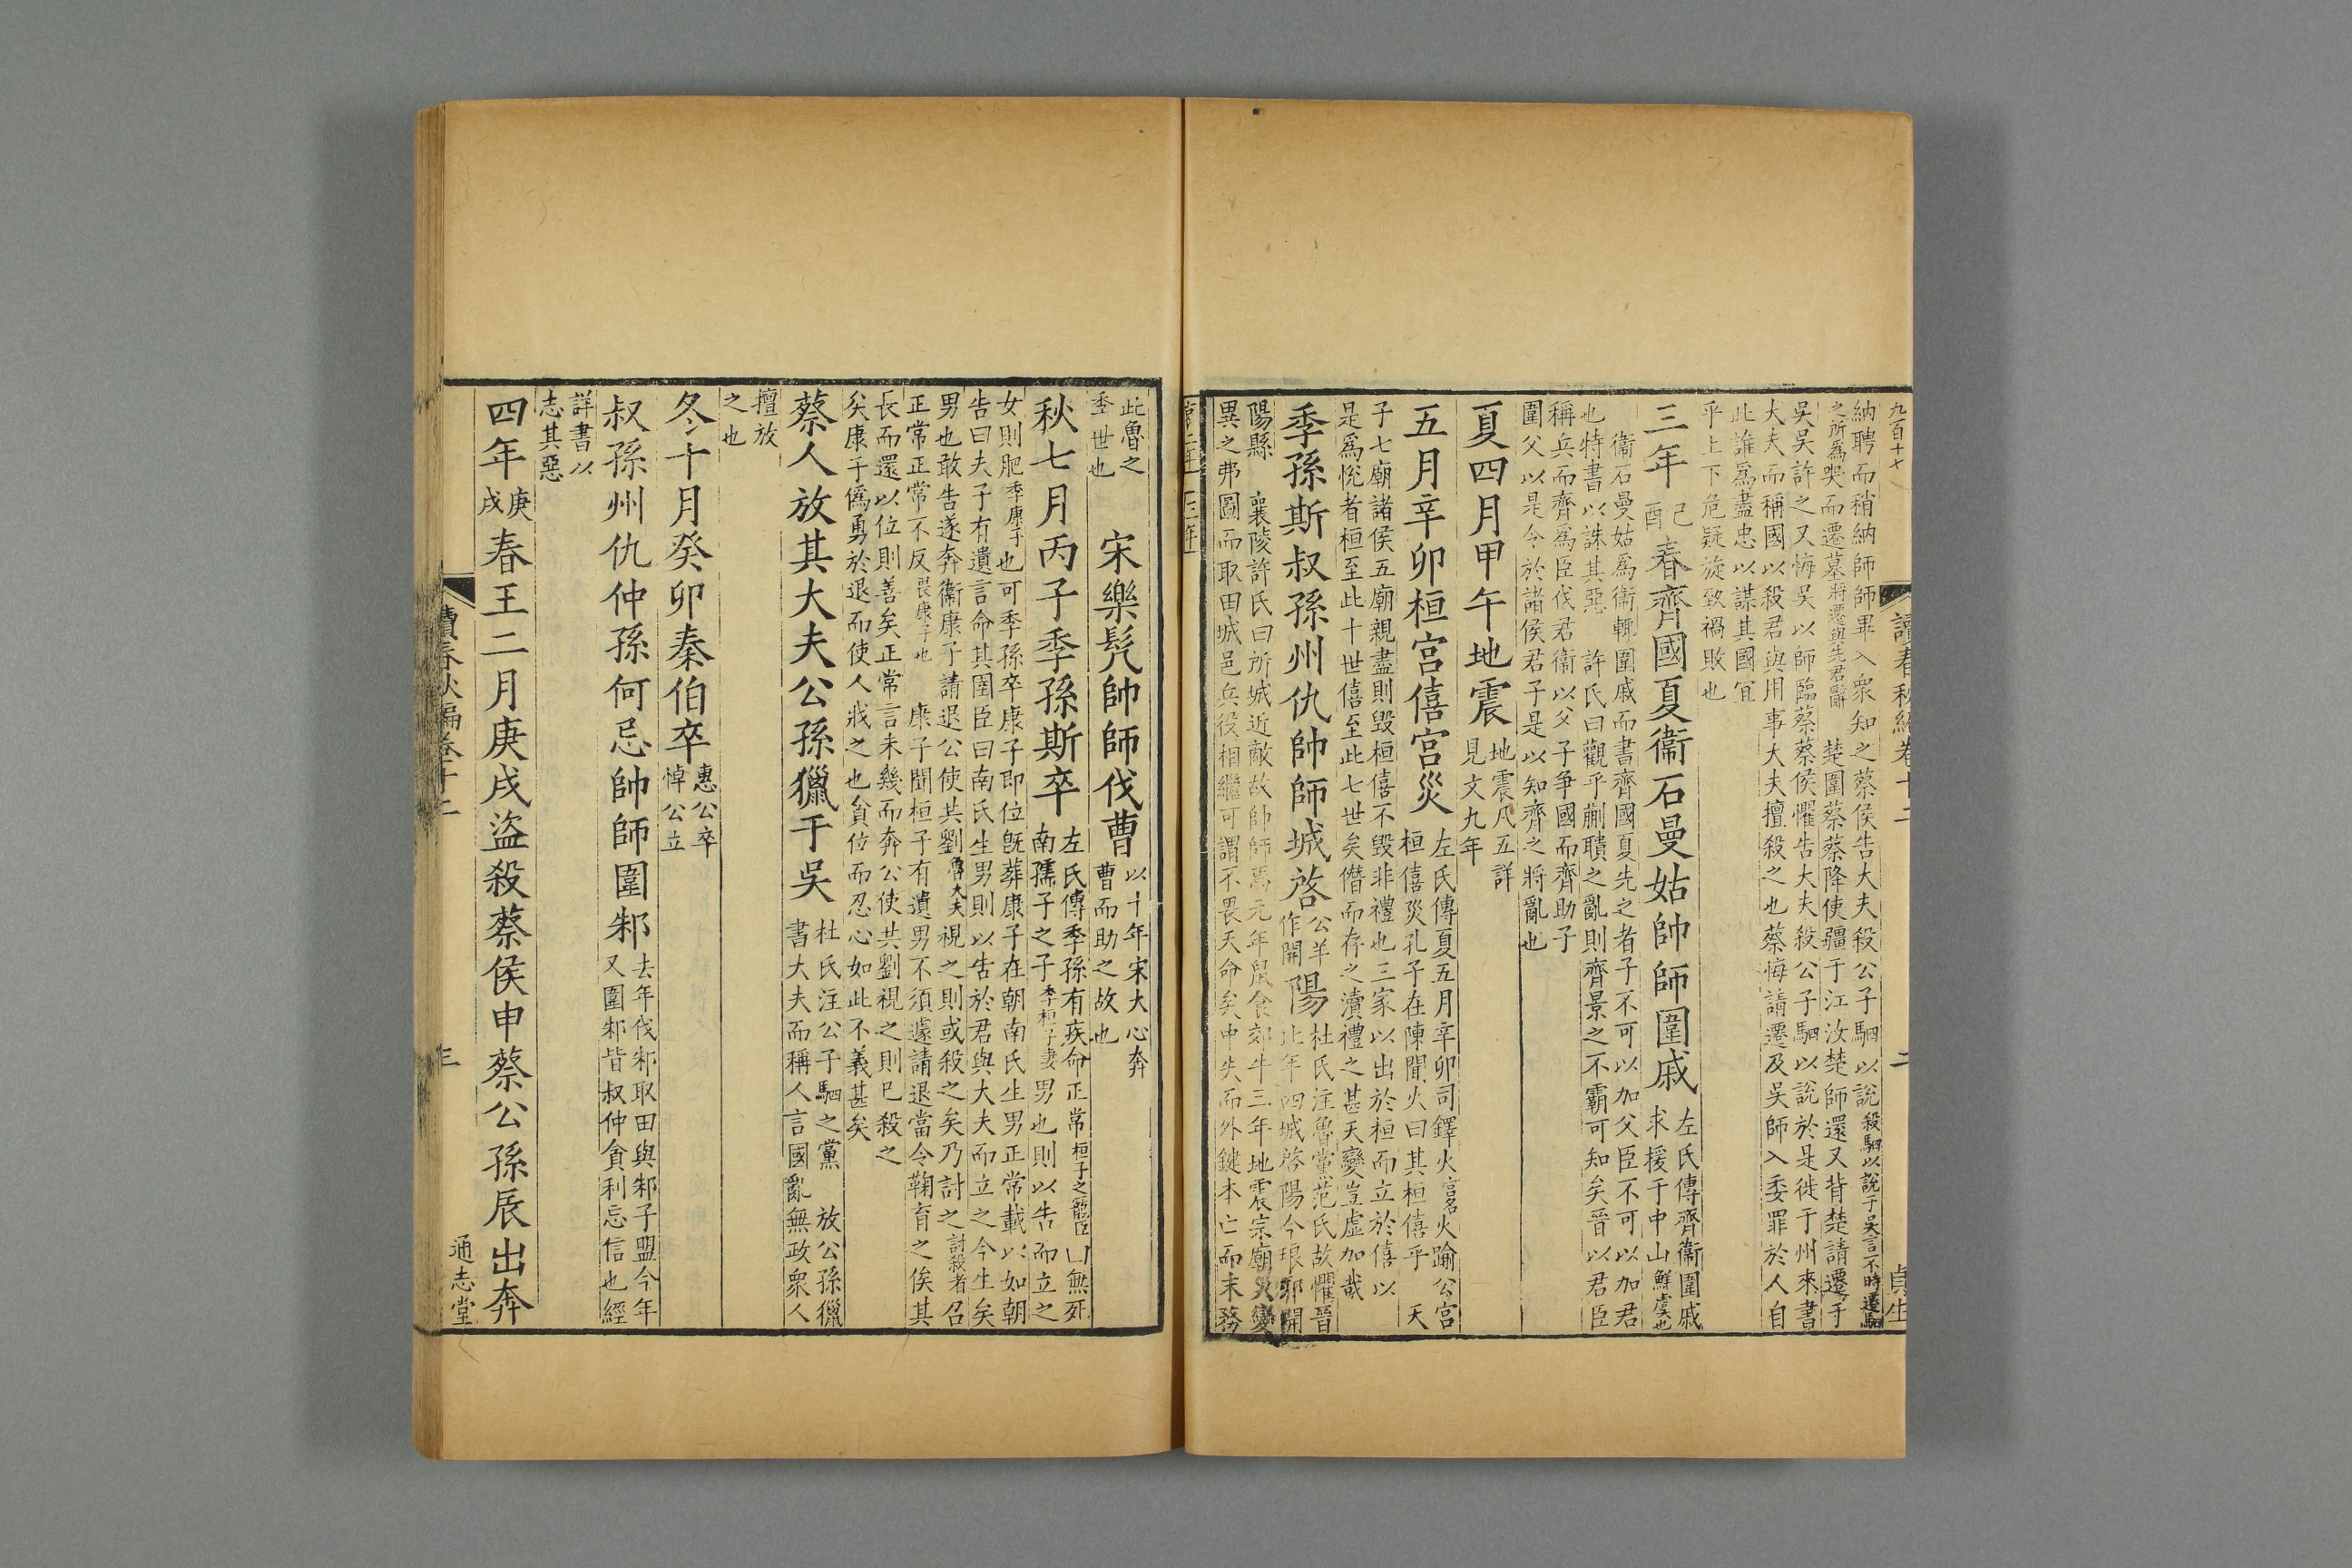 九百十七
讀春秋編卷十二
二
納聘而稍納師師畢入衆知之蔡侯告大夫殺公子駟以說殺駟以說于吳言不時遷駟
之所爲哭而遷墓將遷與先君辭 楚圍蔡蔡降使疆于江汝楚師還又背楚請遷于
吳吳許之又悔吳以師臨蔡蔡侯懼告大夫殺公子駟以說於是徙于州來書
大夫而稱國以殺君與用事大夫擅殺之也蔡悔請遷及吳師入委罪於人自
此誰爲盡忠以謀其國冝
乎上下危疑旋致禍敗也
三年己酉春齊國夏衞石曼姑帥師圍戚左氏傳齊衞圍戚求援于中山鮮虞也
衞石曼姑爲衞輒圍戚而書齊國夏先之者子不可以加父臣不可以加君
也特書以誅其惡 許氏曰觀乎蒯聵之亂則齊景之不霸可知矣晉以君臣
稱兵而齊爲臣伐君衞以父子爭國而齊助子
圍父以是令於諸侯君子是以知齊之將亂也
夏四月甲午地震地震凡五詳見文九年
五月辛卯桓宮僖宮災左氏傳夏五月辛卯司鐸火宮名火踰公宮桓僖災孔子在陳聞火曰其桓僖乎 天
子七廟諸侯五廟親盡則毀桓僖不毀非禮也三家以出於桓而立於僖以
是爲恱者桓至此十世僖至此七世矣僭而存之瀆禮之甚天變豈虛加哉
季孫斯叔孫州仇帥師城啓公羊作開陽杜氏注魯黨范氏故懼晉比年四城啓陽今琅邪開
陽縣 襄陵許氏曰所城近敵故帥師焉元年鼠食郊牛三年地震宗廟災變
異之弗圖而取田城邑兵役相繼可謂不畏天命矣中失而外鍵本亡而末務
此魯之
季世也
宋樂髠帥師伐曹以十年宋大心奔曹而助之故也
秋七月丙子季孫斯卒左氏傳季孫有疾命正常桓子之寵臣曰無死南孺子之子季桓子妻男也則以告而立之
女則肥季康子也可季孫卒康子即位旣葬康子在朝南氏生男正常載以如朝
告曰夫子有遺言命其圉臣曰南氏生男則以告於君與大夫而立之今生矣
男也敢告遂奔衞康子請退公使共劉魯大夫視之則或殺之矣乃討之討殺者召
正常正常不反畏康子也 康子聞桓子有遺男不須遽請退當令鞠育之俟其
長而還以位則善矣正常言未幾而奔公使共劉視之則已殺之
矣康子僞勇於退而使人戕之也貪位而忍心如此不義甚矣
蔡人放其大夫公孫獵于吳杜氏注公子駟之黨 放公孫獵書大夫而稱人言國亂無政衆人
擅放
之也
冬十月癸卯秦伯卒惠公卒悼公立
叔孫州仇仲孫何忌帥師圍邾去年伐邾取田與邾子盟今年又圍邾皆叔仲貪利忘信也經
詳書以
志其惡
四年庚戌春王二月庚戌盜殺蔡侯申蔡公孫辰出奔
讀春秋編卷十二
三
通志堂